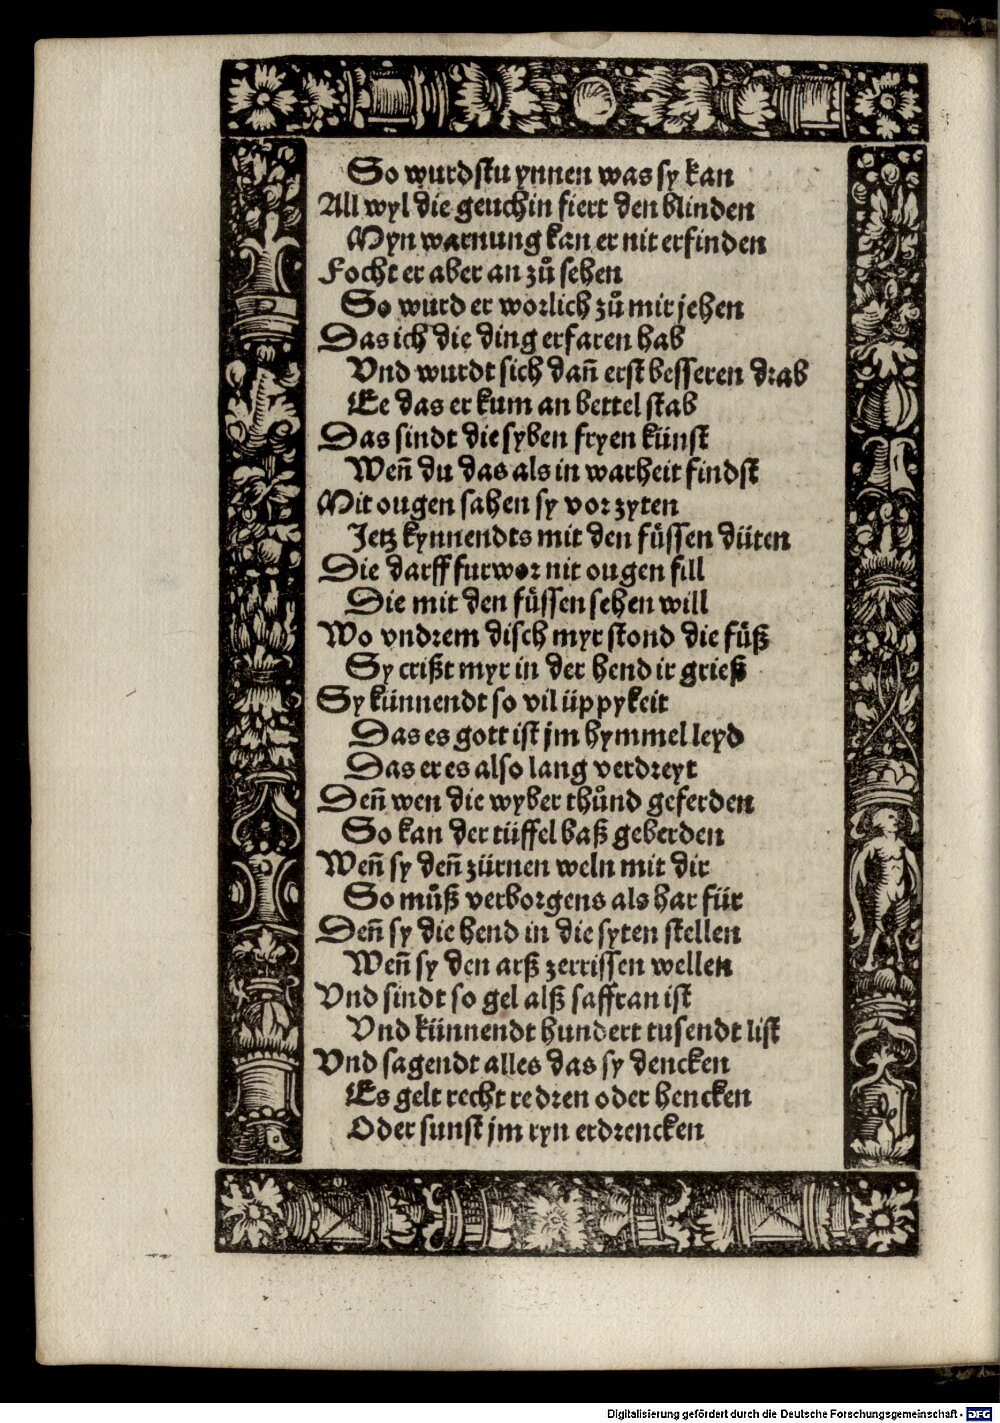 So wurdstu ynnen was sy kan
All wyl die geuchin fiert den blinden
Myn warnung kan er nit erfinden
Focht er aber an zů sehen
So wurd er worlich zů mir jehen
Das ich die ding erfaren hab
Vnd wurdt sich dañ erst besseren drab
Ee das er kum an bettel stab
Das sindt die syben fryen künst
Weñ du das als in warheit findst
Mit ougen sahen sy vor zyten
Jetz kynnendts mit den füssen düten
Die darff furwor nit ougen fill
Die mit den füssen sehen will
Wo vndrem disch myr stond die füß
Sy crißt myr in der hend ir grieß
Sy künnendt so vil üppykeit
Das es gott ist jm hymmel leyd
Das er es also lang verdreyt
Deñ wen die wyber thůnd geferden
So kan der tüffel baß geberden
Weñ sy deñ zürnen weln mit dir
So můß verborgens als har für
Deñ sy die hend in die syten stellen
Weñ sy den arß zerrissen wellen
Vnd sindt so gel alß saffran ist
Vnd künnendt hundert tusendt list
Vnd sagendt alles das sy dencken
Es gelt recht redren oder hencken
Oder sunst jm ryn erdrencken
Digitalisierung gefördert durch die Deutsche Forschungsgemeinschaft - DFG